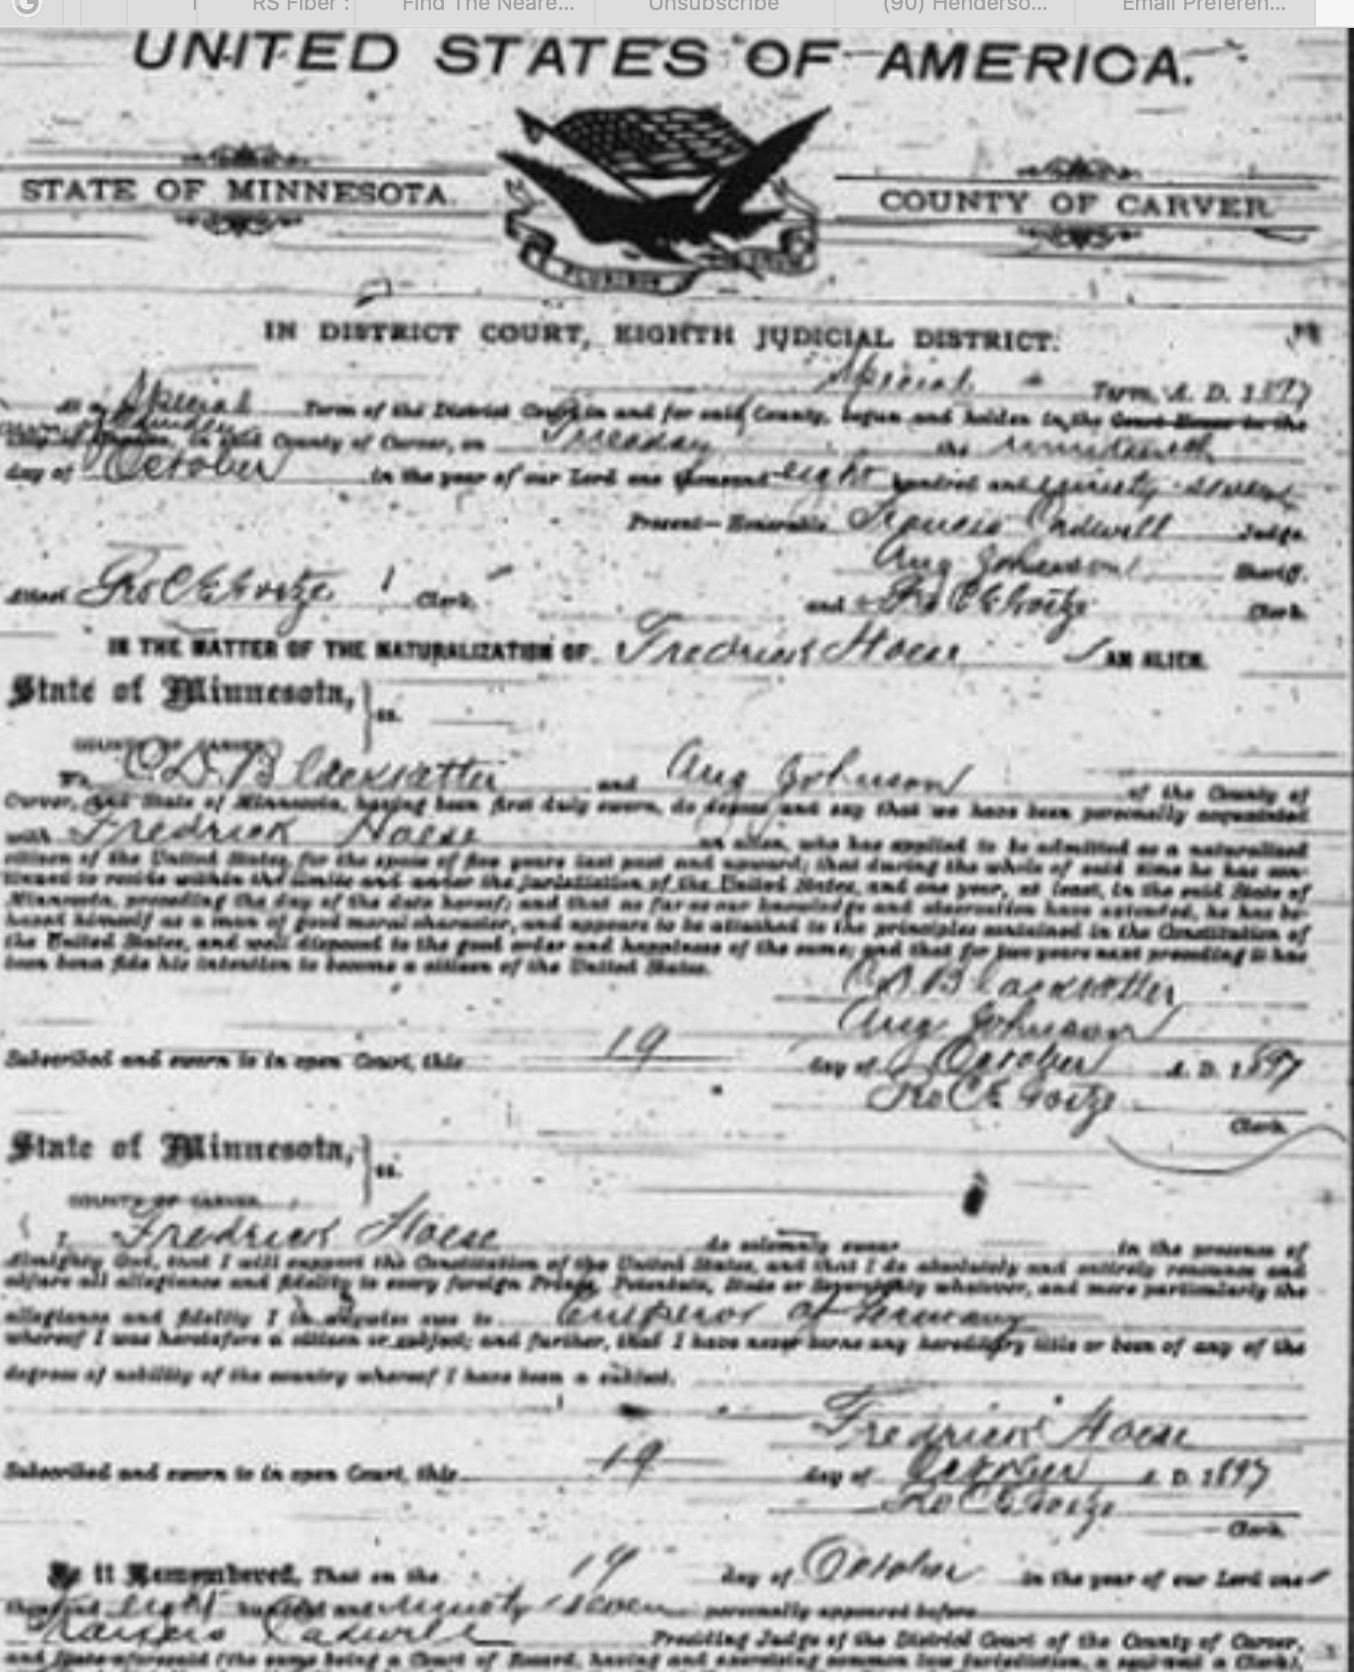 RS Fiber : Find The Neare... Unsubscribe (90) Henderso... Email Preferen...
UNITED STATES OF AMERICA.
PLURIBUS UNUM
STATE OF MINNESOTA. COUNTY OF CARVER.
IN DISTRICT COURT, EIGHTH JUDICIAL DISTRICT.
Special Term, A. D. 1897
At a Special Term of the District Court in and for said County, begun and holden in the Court House in the
in said County of Carver, on Tuesday the nineteenth
day of October in the year of our Lord one thousand eight hundred and ninety-seven
Present—Honorable Francis Cadwell Judge.
Aug Johnson Sheriff.
Attest Clerk. and Clerk.
IN THE MATTER OF THE NATURALIZATION OF Fredrick Haese AN ALIEN.
State of Minnesota, } ss.
COUNTY OF CARVER
We Aug Johnson and of the County of
Carver, and State of Minnesota, having been first duly sworn, do depose and say that we have been personally acquainted
with Fredrick Haese an alien, who has applied to be admitted as a naturalized
citizen of the United States, for the space of five years last past and upward; that during the whole of said time he has con-
tinued to reside within the limits and under the jurisdiction of the United States, and one year, at least, in the said State of
Minnesota, preceding the day of the date hereof; and that as far as our knowledge and observation have extended, he has be-
haved himself as a man of good moral character, and appears to be attached to the principles contained in the Constitution of
the United States, and well disposed to the good order and happiness of the same; and that for two years next preceding it has
been bona fide his intention to become a citizen of the United States.
Aug Johnson
Subscribed and sworn to in open Court, this 19 day of October A. D. 1897
Clerk.
State of Minnesota, } ss.
COUNTY OF CARVER
I, Fredrick Haese do solemnly swear in the presence of
Almighty God, that I will support the Constitution of the United States, and that I do absolutely and entirely renounce and
abjure all allegiance and fidelity to every foreign Prince, Potentate, State or Sovereignty whatever, and more particularly the
allegiance and fidelity I in anywise owe to Emperor of Germany
whereof I was heretofore a citizen or subject; and further, that I have never borne any hereditary title or been of any of the
degrees of nobility of the country whereof I have been a subject.
Fredrick Haese
Subscribed and sworn to in open Court, this 19 day of October A. D. 1897
Clerk.
Be it Remembered, That on the 19 day of October in the year of our Lord one
thousand eight hundred and ninety seven personally appeared before
Francis Cadwell Presiding Judge of the District Court of the County of Carver,
and State aforesaid (the same being a Court of Record, having and exercising common law jurisdiction, a seal and a Clerk),